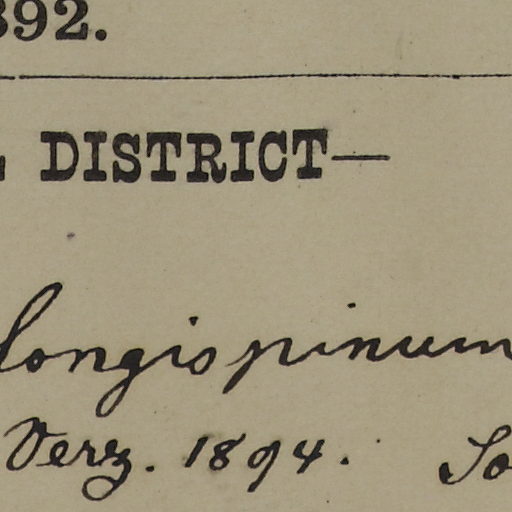 892.
DISTRICT—
longispinum
Verz. 1894. So